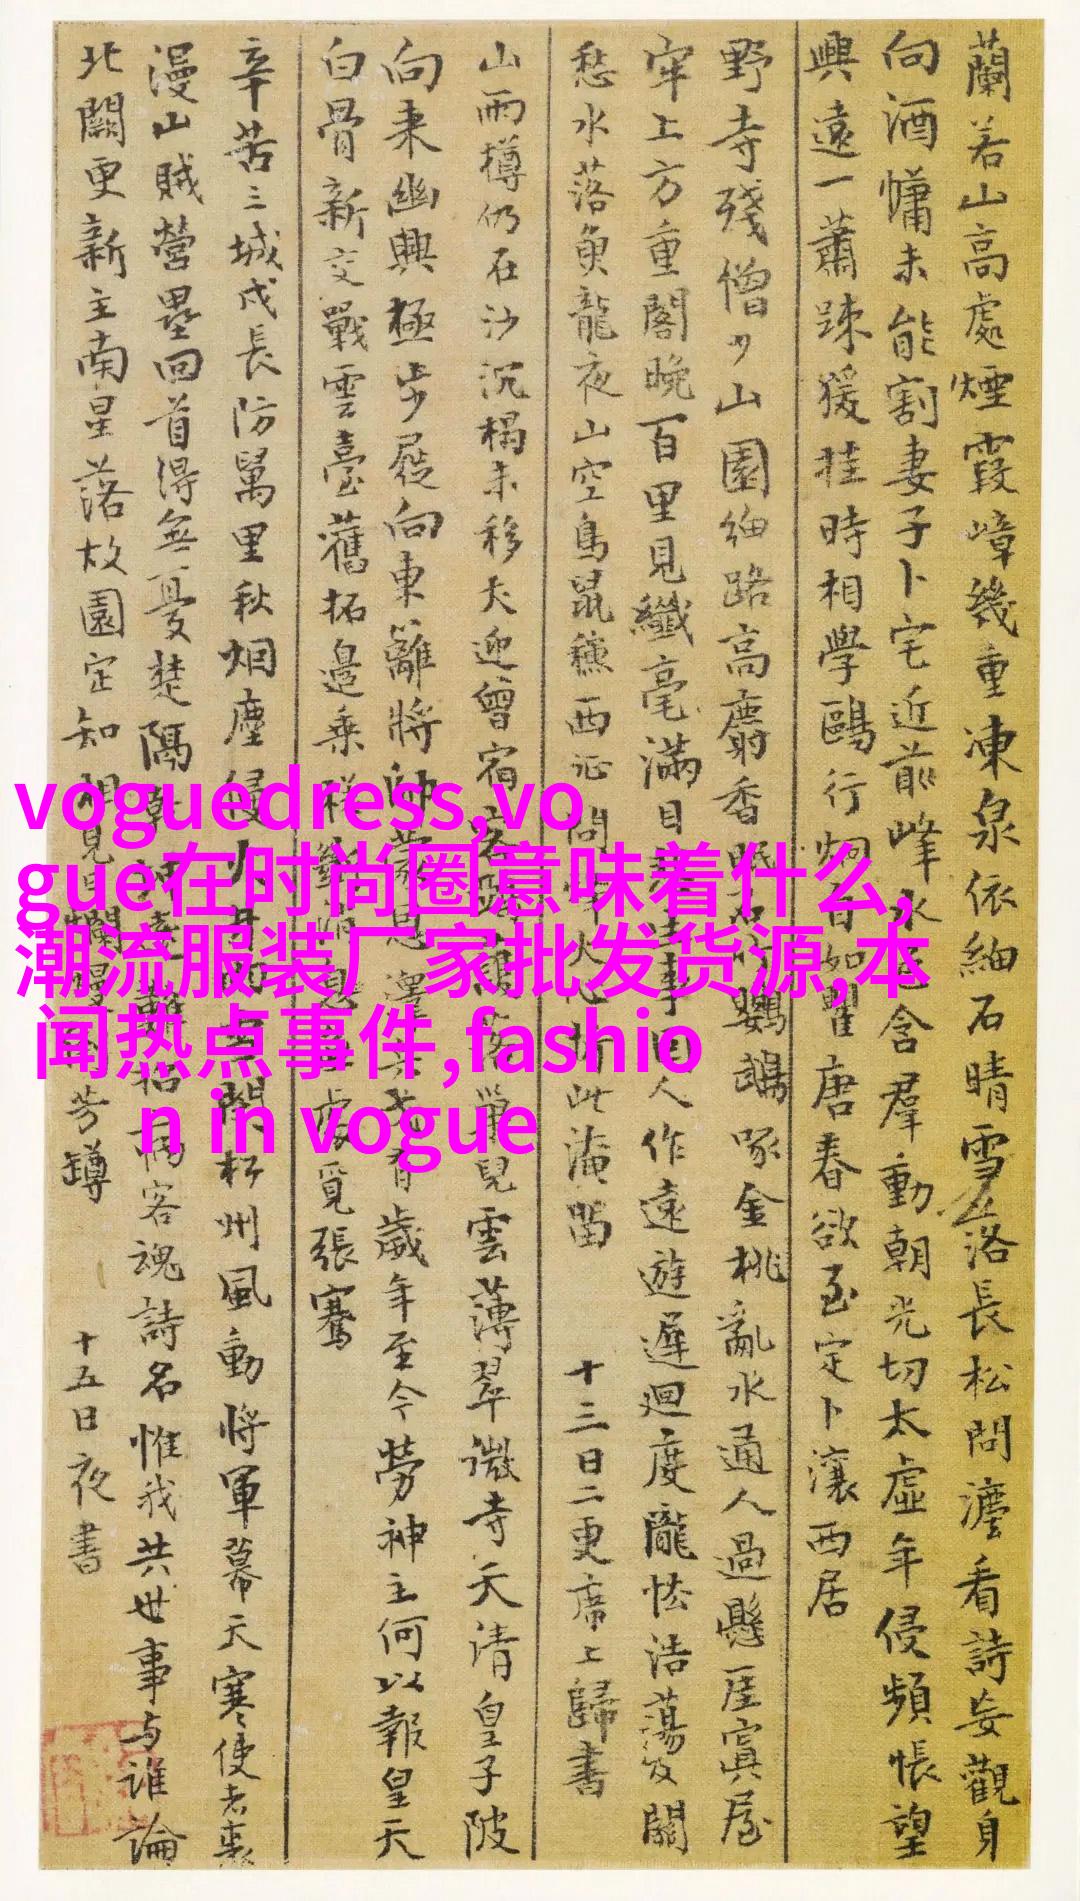 蘭若山高處煙霞嶂幾重凍泉依細石晴雪落長松問灋看詩妄觀身
向酒慵未能割妻子卜宅近前峰水色含羣動朝光切太虛年侵頻悵望
興遠一蕭踈猨挂時相學鷗行炯自如瞿唐春欲至定卜瀼西居
野寺殘僧少山園細路高麝香眠石竹鸚鵡啄金桃亂水通人過懸崖寘屋
牢上方重閣晚百里見纖毫滿目悲生事因人作遠遊遲迴度隴怯浩蕩及關
愁水落魚龍夜山空鳥鼠秋西征問烽火心折此淹留 十三日二更席上歸書
山雨樽仍在沙沉榻未移犬迎曾宿客鴉護落巢兒雲薄翠微寺天清皇子陂
向来幽興極步屐向東籬將帥蒙恩澤兵戈有歲年至今勞神主何以報皇天
白骨新交戰雲臺舊拓邊乘槎斷消息無處覓張騫
辛苦三城戍長防萬里秋烟塵侵火井雨雪閉松州風動將軍幕天寒使者裘
漫山賊營壘回首得無憂楚隔乾坤遠難招病客魂詩名惟我共世事与誰論
北闕更新主南星落故園定知相見日爛熳倒芳罇 十五日夜書
voguedress,vo
gue在时尚圈意味着什么,
潮流服装厂家批发货源,本
闻热点事件,fashio
n in vogue